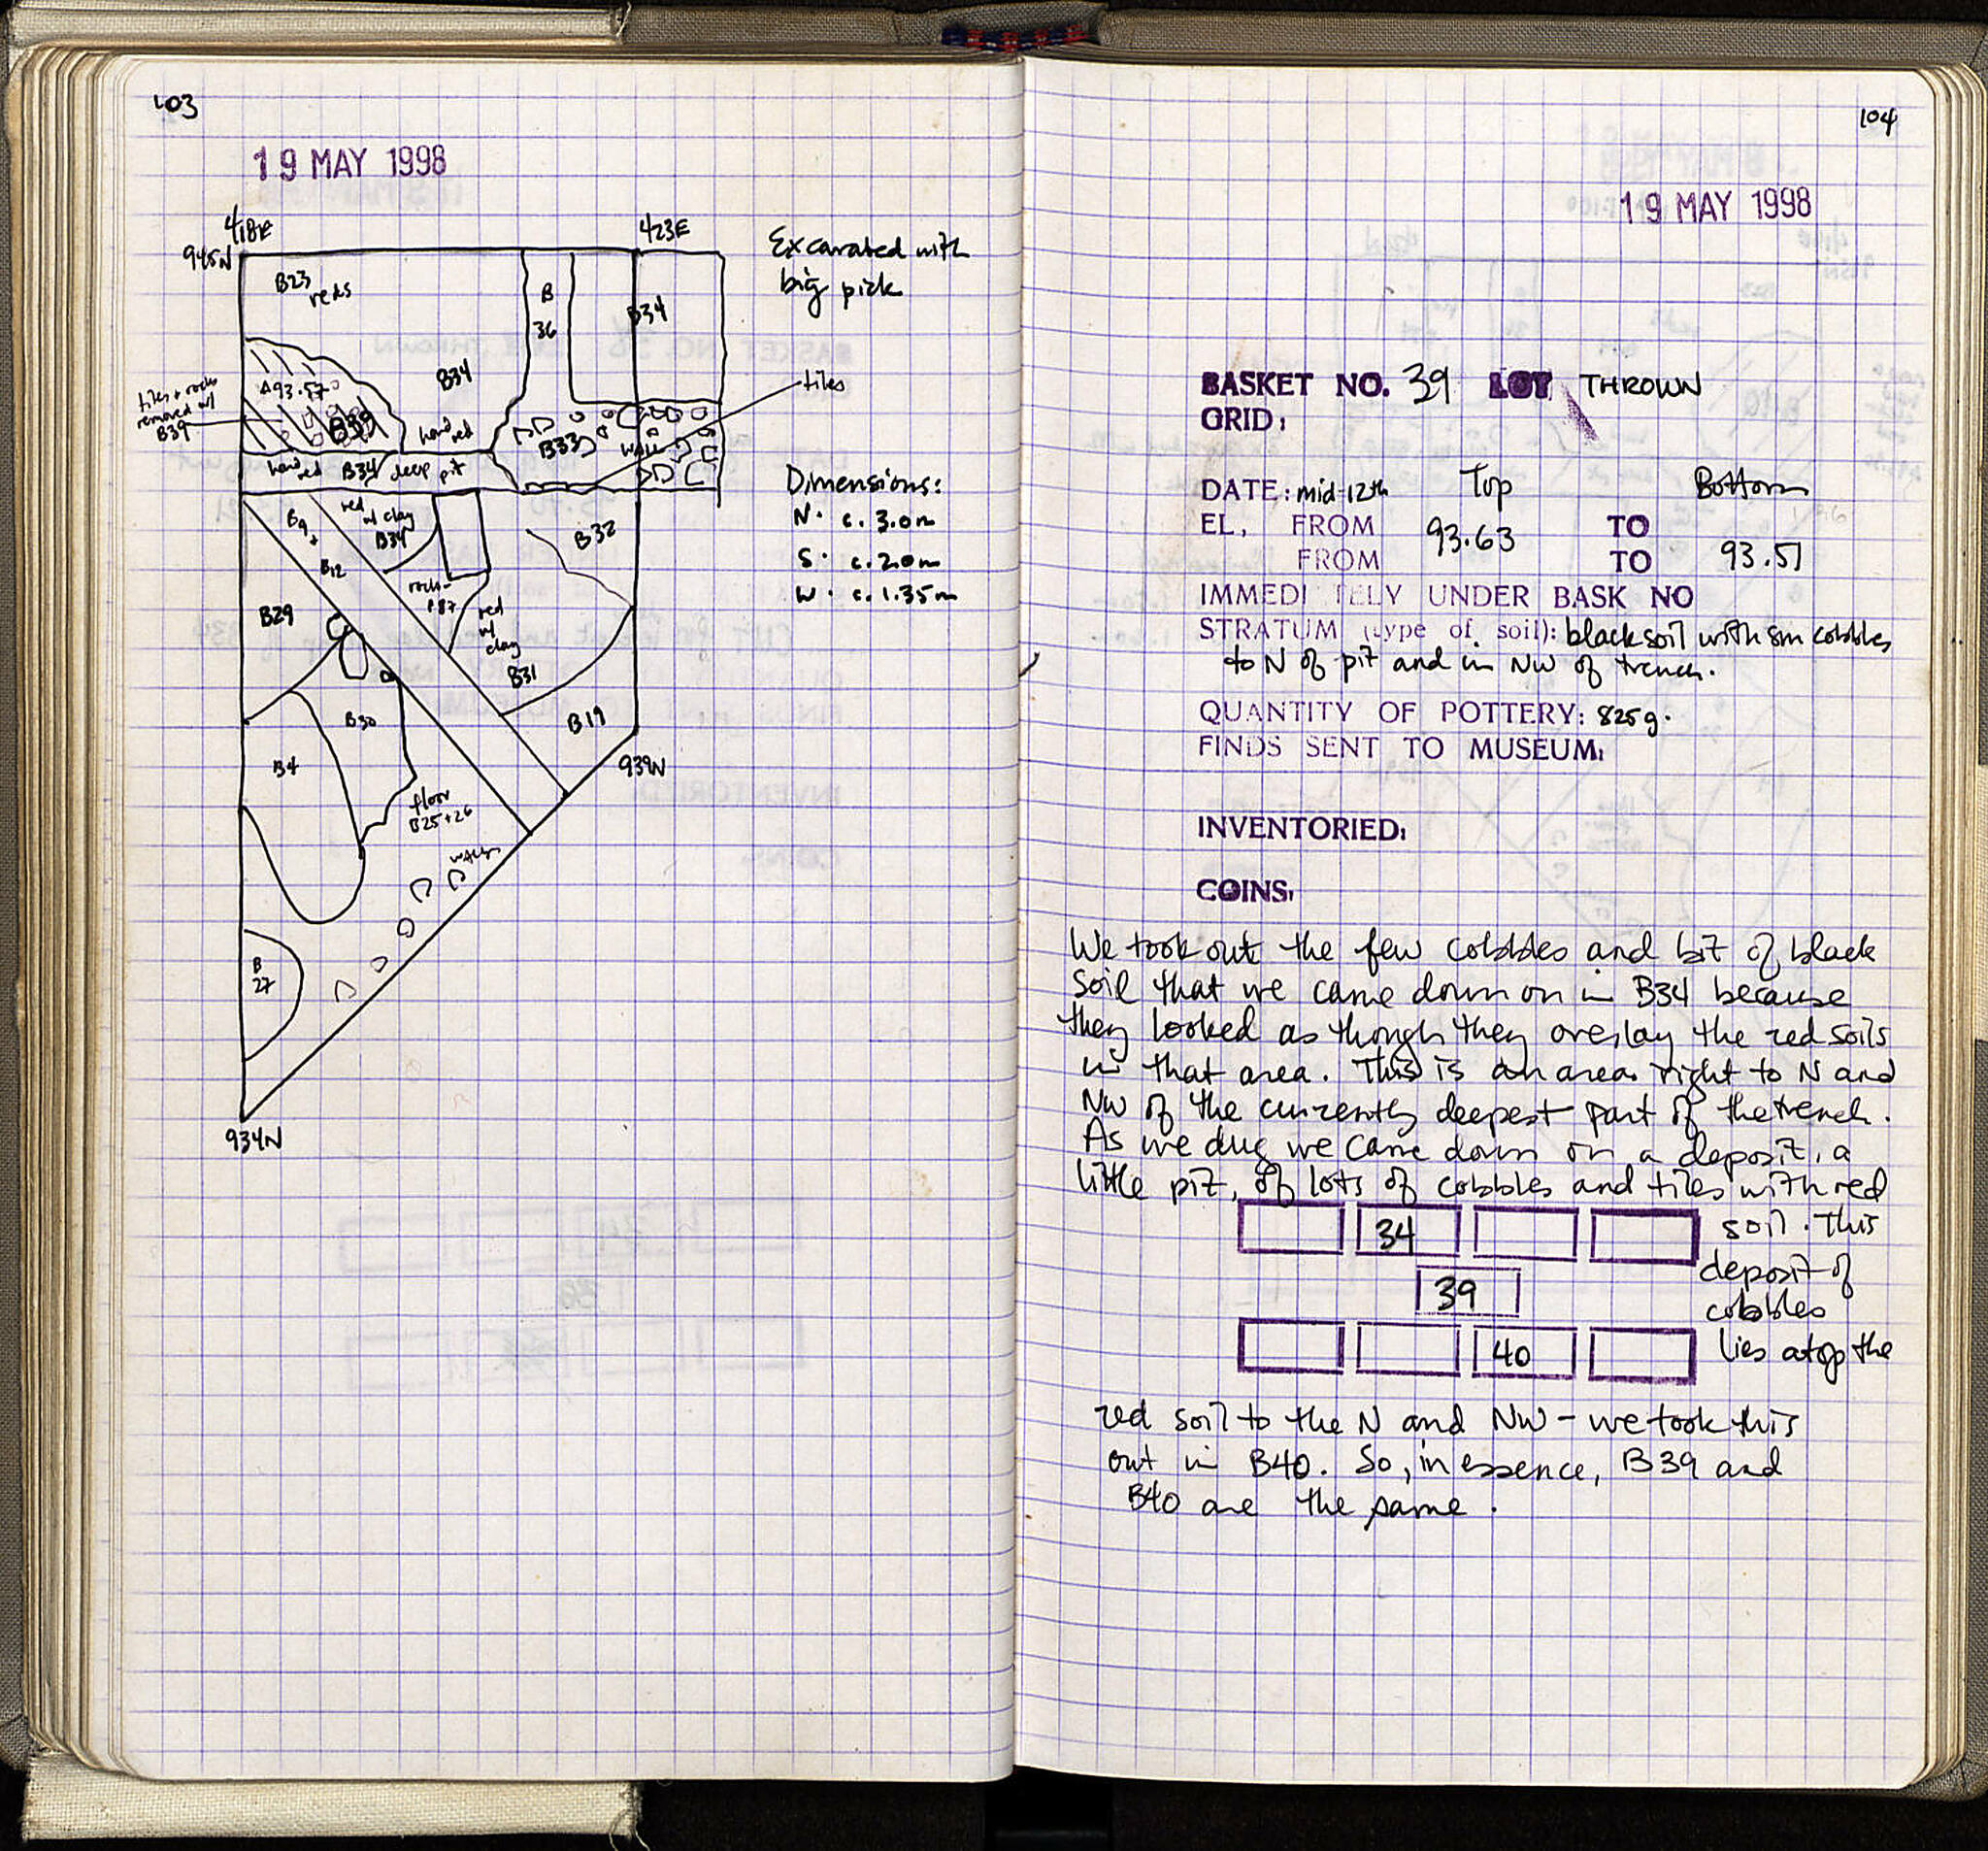 103
19 MAY 1998
418E
423E
945N
Excavated with
big pick
B23
reds
B
36
B34
B34
tiles
tiles + rocks
removed w/
B39
93.57
B39
hard red
B33
WALL
hard red B34 deep pit
Dimensions:
N. c. 3.0m
S. c. 2.0m
W. c. 1.35m
B9
red
w/ clay
B34
B32
B12
rocks
B29
red
w/
clay
B31
B30
B19
B4
939N
floor
B25+26
WALL
B
27
934N
104
19 MAY 1998
BASKET NO. 39 LOT THROWN
GRID:
DATE: mid-12th Top Bottom
EL, FROM 93.63 TO
FROM TO 93.51
IMMEDI TELY UNDER BASK NO
STRATUM (type of soil): black soil with sm cobbles
to N of pit and in NW of trench.
QUANTITY OF POTTERY: 825g.
FINDS SENT TO MUSEUM:
INVENTORIED:
COINS:
We took out the few cobbles and bit of black
soil that we came down on in B34 because
they looked as though they overlay the red soils
in that area. This is an area right to N and
NW of the currently deepest part of the trench.
As we dug we came down on a deposit, a
little pit, of lots of cobbles and tiles with red
soil. This
34
deposit of
39
cobbles
40
lies atop the
red soil to the N and NW - we took this
out in B40. So, in essence, B39 and
B40 are the same.